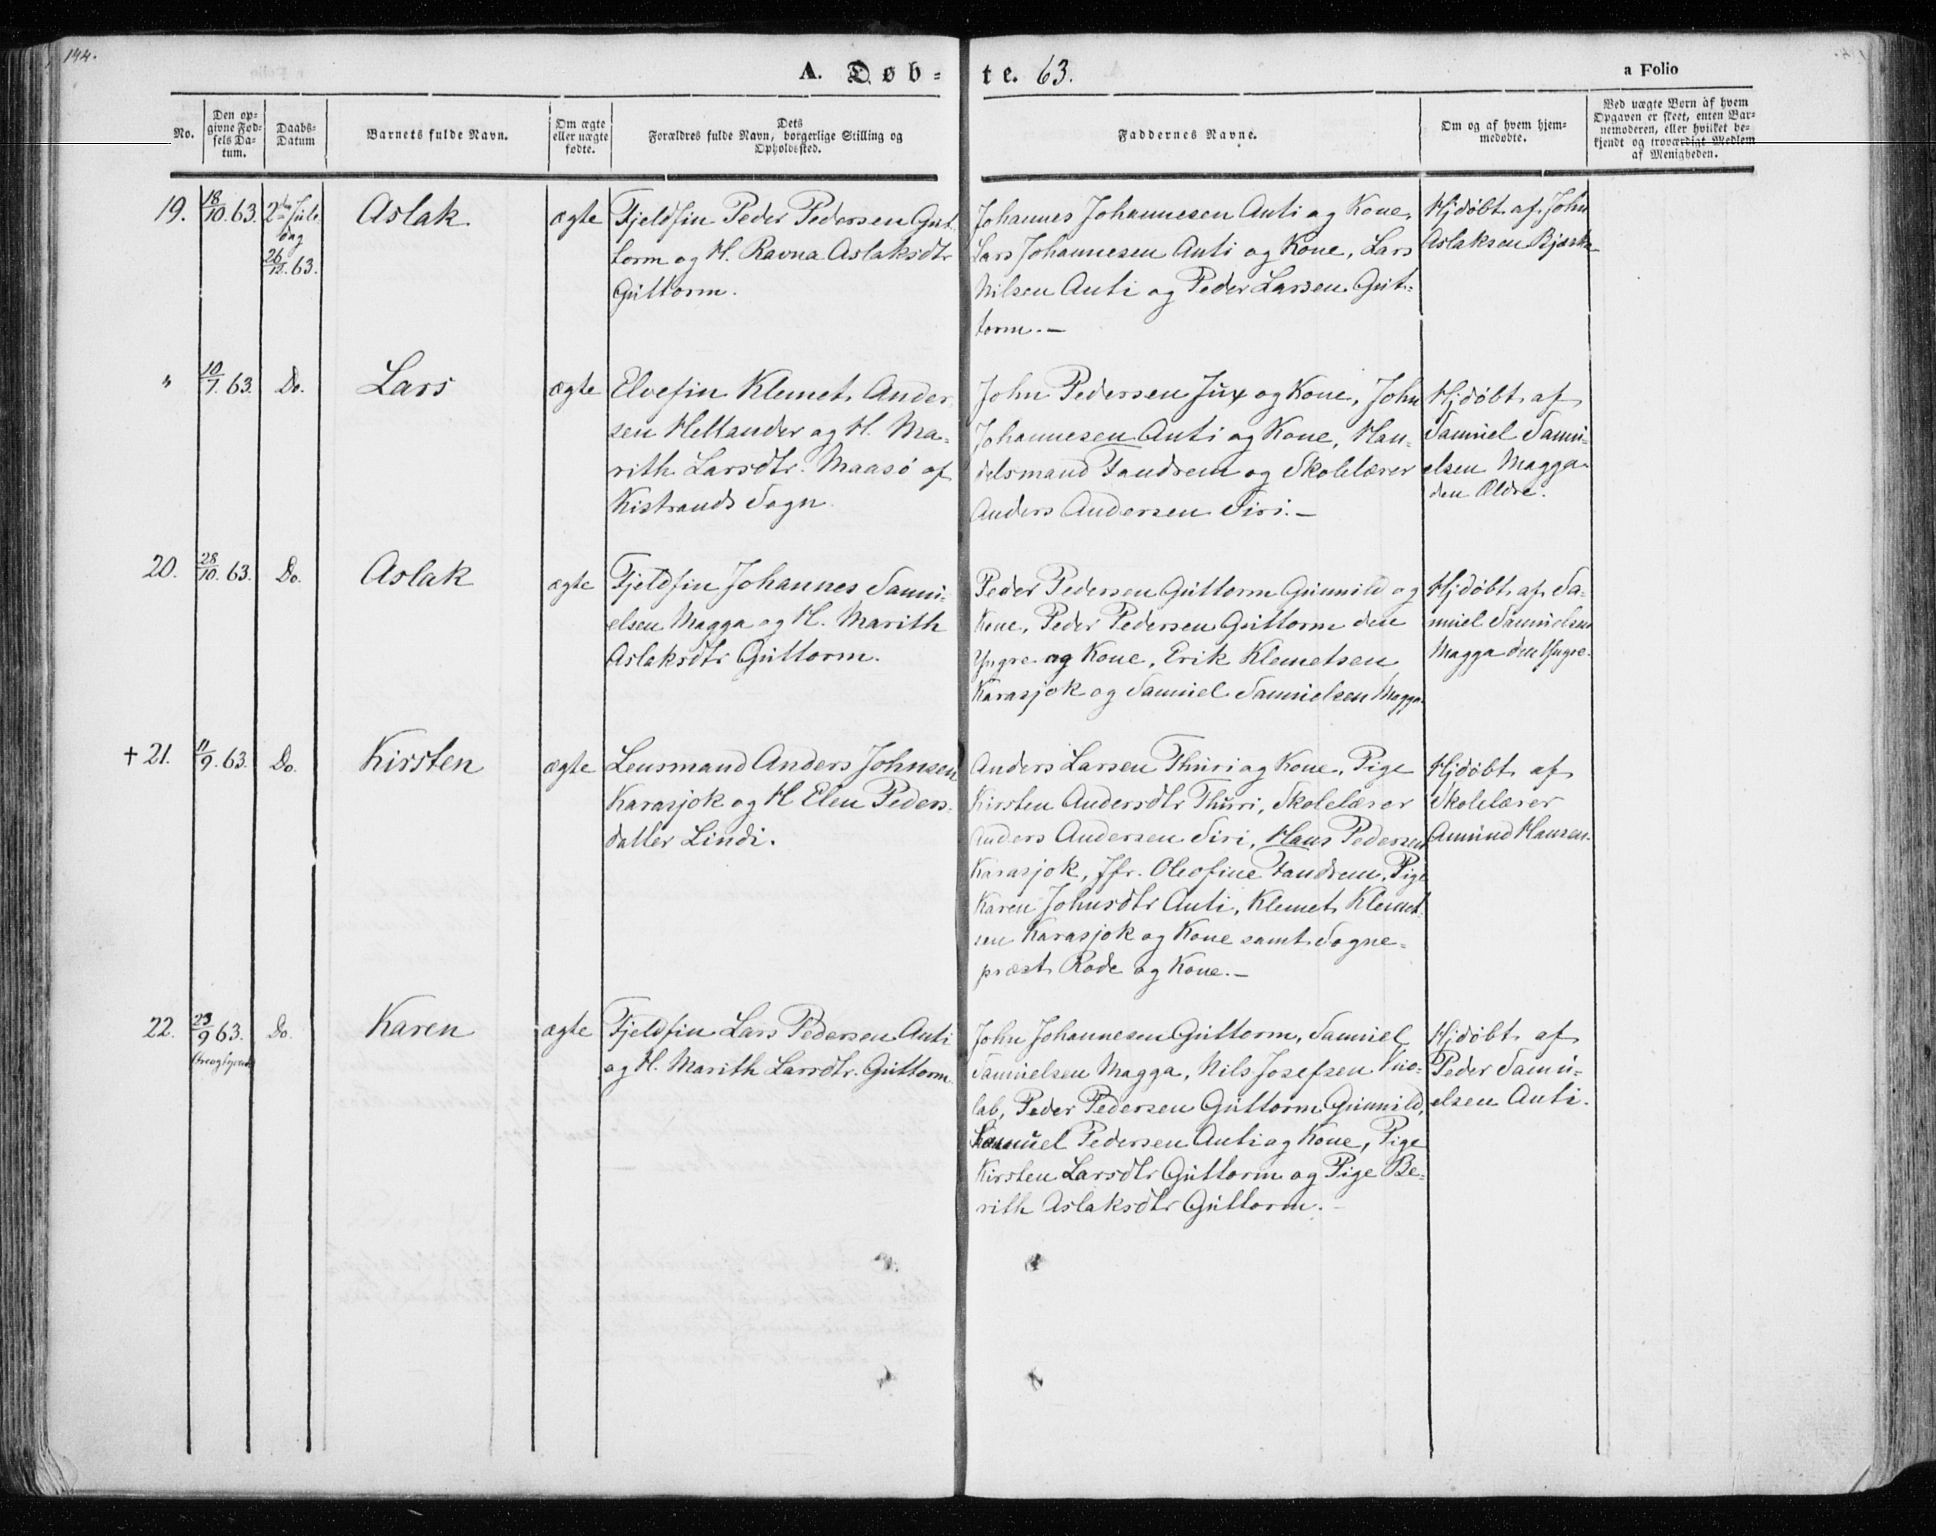 144.
A. Døb-
te. 63.
a Folio
No.
Den op-
givne Fød-
sels Da-
tum.
Daabs-
Datum
Barnets fulde Navn.
Om ægte
eller uægte
fødte.
Dets
Forældres fulde Navn, borgerlige Stilling og
Opholdssted.
Faddernes Navne.
Om og af hvem hjem-
medøbte.
Ved uægte Børn af hvem
Opgaven er skeet, enten Bar-
nemoderen, eller hvilket be-
kjendt og troværdigt Medlem
af Menigheden.
19.
18/10. 63.
2den Jule
dag
26/12. 63.
Aslak
ægte
Fjeldfin Peder Pedersen Gut
torm og H. Ravna Aslaksdtr
Guttorm.
Johannes Johannesen Anti og Kone,
Lars Johannesen Anti og Kone, Lars
Nilsen Anti og Peder Larsen Gut-
torm. —
Hjdøbt af John
Aslaksen
"
10/7. 63.
Do.
Lars
ægte
Elvefin Klemet Ander
sen Hellander og H. Ma-
rith Larsdtr. Maasø af
Kistrands Sogn.
John Pedersen Jux og Kone, John
Johannesen Anti og Kone, Han-
delsmand Fandrem og Skolelærer
Anders Andersen Siri. —
Hjdøbt af
Samuel Samu-
elsen Magga
den Ældre.
20.
28/10. 63.
Do.
Aslak
ægte
Fjeldfin Johannes Samu-
elsen Magga og H. Marith
Aslaksdtr Guttorm.
Peder Pedersen Guttorm Gunnild og
Kone, Peder Pedersen Guttorm den
Yngre og Kone, Erik Klemetsen
Karasjok og Samuel Samuelsen Magga.
Hjdøbt af Sa-
muel Samuelsen
Magga den Yngre.
† 21.
11/9. 63.
Do.
Kirsten
ægte
Lensmand Anders Johnsen
Karasjok og H Elen Peders-
datter Lindi.
Anders Larsen Thuri og Kone, Pige
Kirsten Andersdtr Thuri, Skolelærer
Anders Andersen Siri, Hans Pedersen
Karasjok, Jfr. Oleofine Fandrem, Pige
Karen Johnsdtr Anti, Klemet Klemet
sen Karasjok og Kone samt Sogne-
præst Rode og Kone. —
Hjdøbt af
Skolelærer
Amund Hansen.
22.
23/9 63.
Do.
Karen
ægte
Fjeldfin Lars Pedersen Anti
og H. Marith Larsdtr. Guttorm.
John Johannesen Guttorm, Samuel
Samuelsen Magga, Nils Josefsen Vuo-
lab, Peder Pedersen Guttorm Gunnild,
Samuel Pedersen Anti og Kone, Pige
Kirsten Larsdtr Guttorm og Pige Be-
rith Aslaksdtr Guttorm. —
Hjdøbt af
Peder Samu-
elsen Anti.